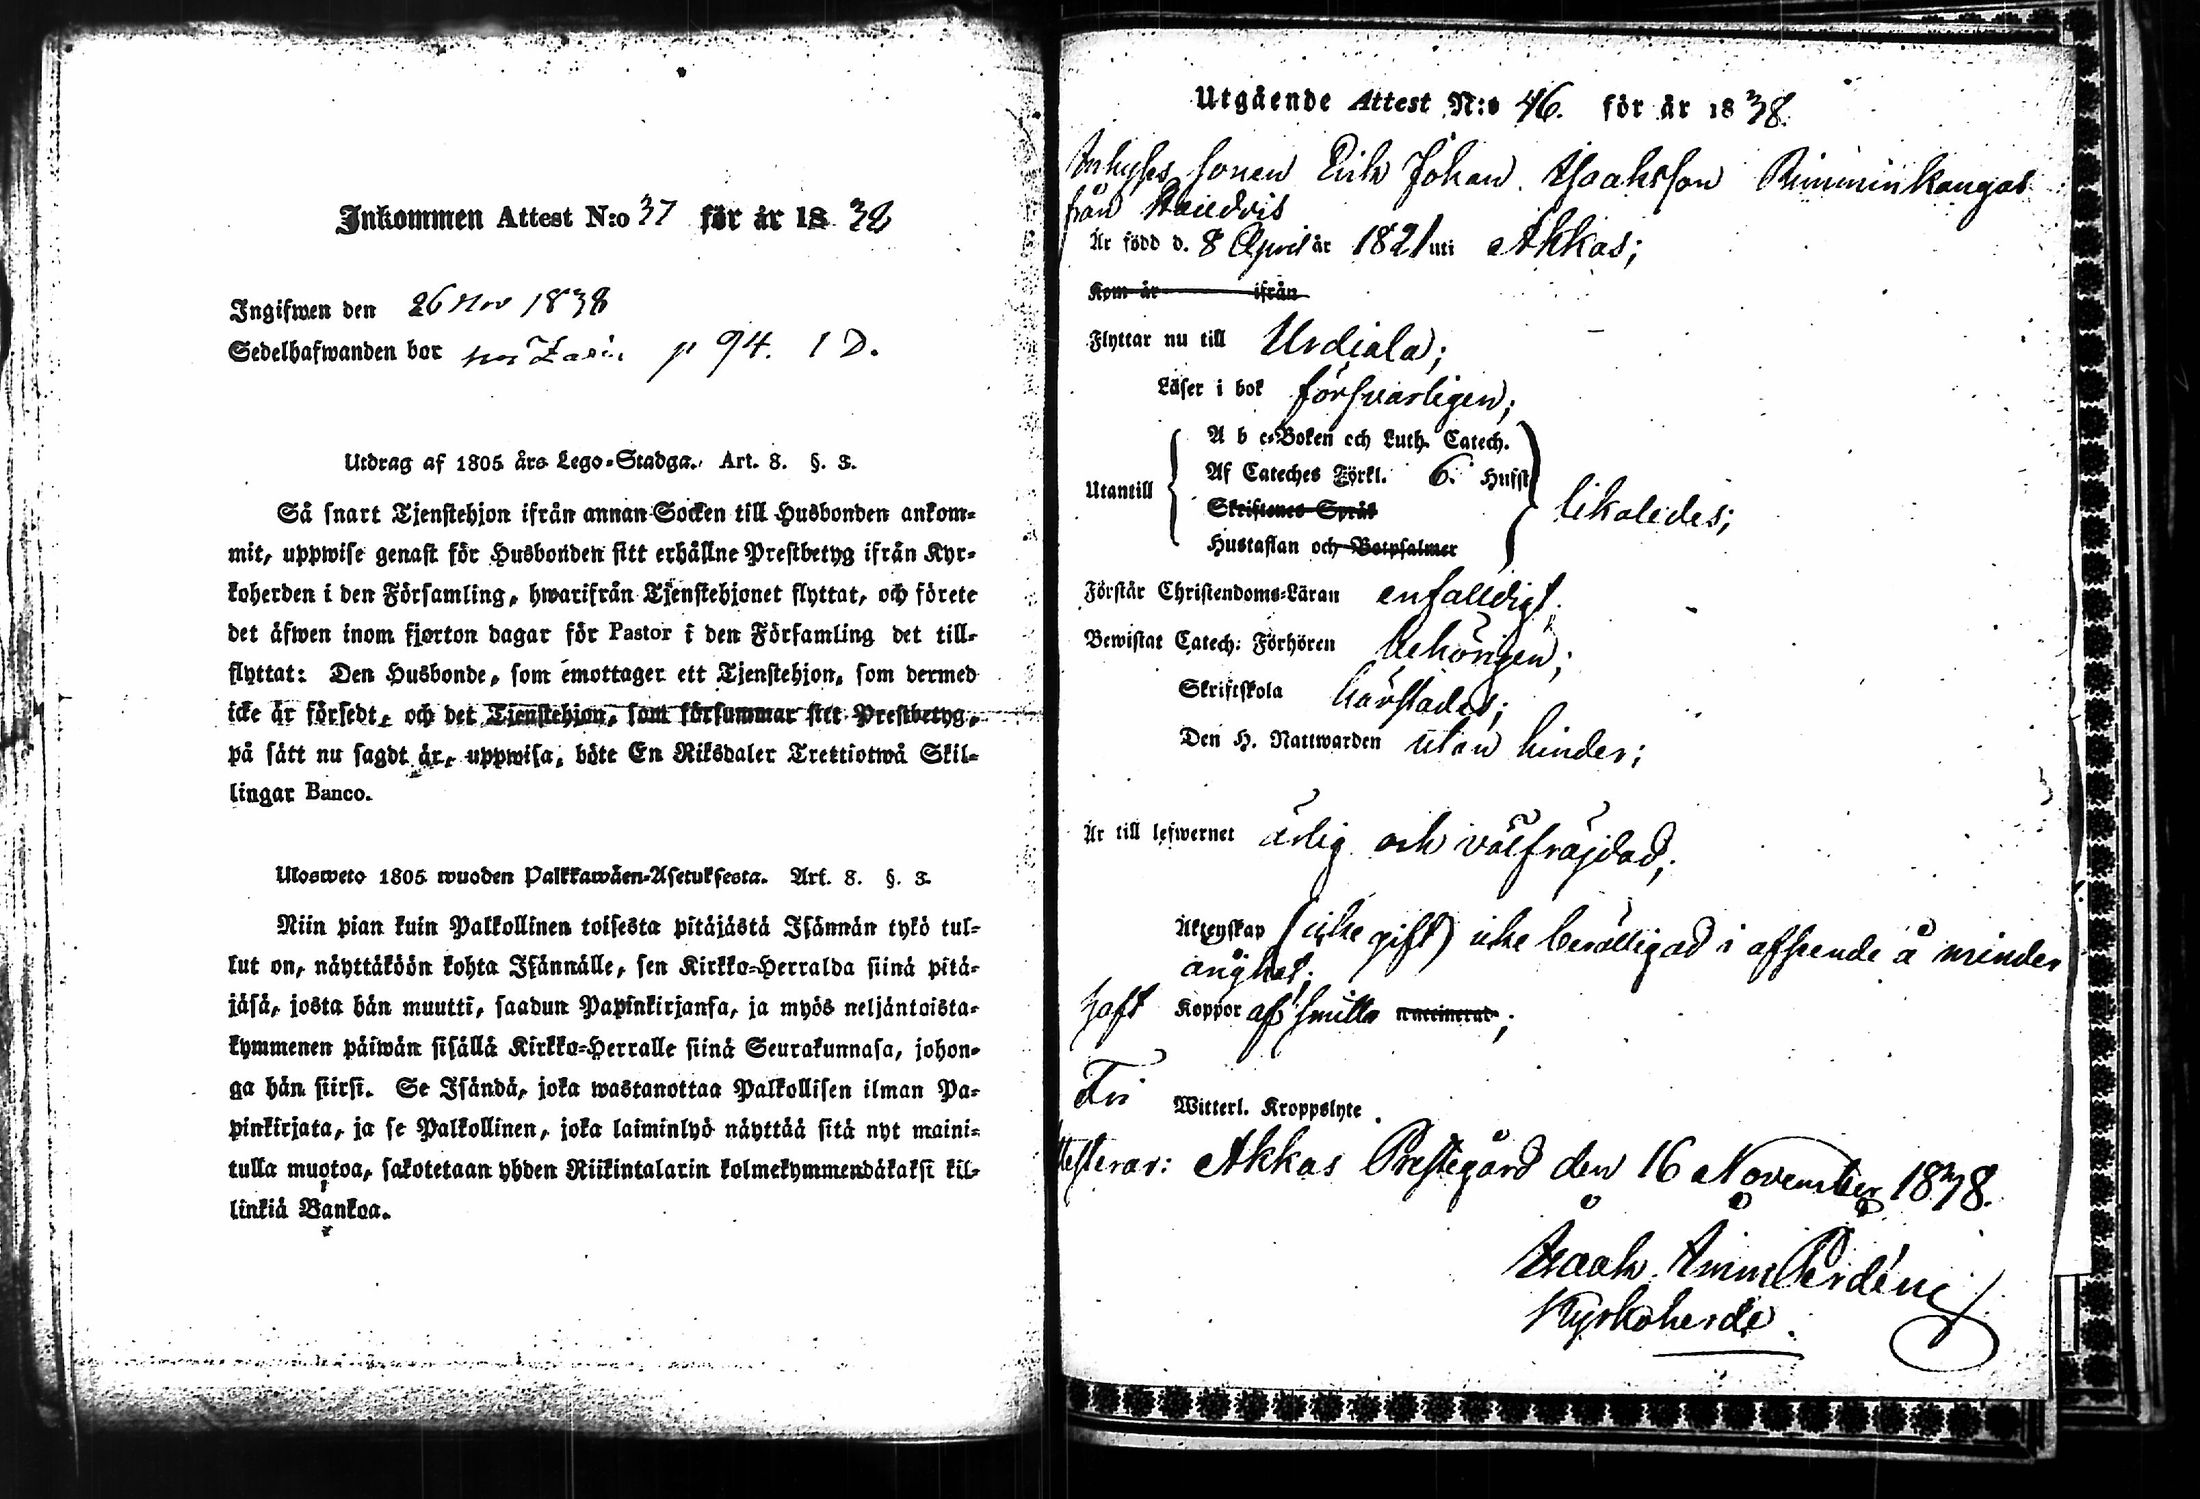 Inkommen Attest N:o 37 för år 18 38
Ingifwen den 26 Nov 1838
Sedelhafwanden bor p 94. 1 D.
Utdrag af 1805 års Lego-Stadga. Art. 8. §. 3.
Så snart Tjenstehjon ifrån annan Socken till Husbonden ankom-
mit, uppwise genast för Husbonden sitt erhållne Prestbetyg ifrån Kyr-
koherden i den Församling, hwarifrån Tjenstehjonet flyttat, och förete
det äfwen inom fjorton dagar för Pastor i den Församling det till-
flyttat: Den Husbonde, som emottager ett Tjenstehjon, som dermed
icke är försedt, och det Tjenstehjon, som försummar sitt Prestbetyg,
på sätt nu sagdt är, uppwisa, böte En Riksdaler Trettiotwå Skil-
lingar Banco.
Ulosweto 1805 wuoden Palkkawäen-Asetuksesta. Art. 8. §. 3.
Niin pian kuin Palkollinen toisesta pitäjästä Isännän tykö tul-
lut on, näyttäköön kohta Isännälle, sen Kirkko-Herralda siinä pitä-
jäsä, josta hän muutti, saadun Papinkirjansa, ja myös neljäntoista-
kymmenen päiwän sisällä Kirkko-Herralle siinä Seurakunnasa, johon-
ga hän siirsi. Se Isändä, joka wastanottaa Palkollisen ilman Pa-
pinkirjata, ja se Palkollinen, joka laiminlyö näyttää sitä nyt maini-
tulla muotoa, sakotetaan yhden Riikintalarin kolmekymmendäkaksi kil-
linkiä Bankoa.
Utgående Attest N:o 46. för år 18 38.
Inhyses sonen Erik Johan Isaaksson Rimminkangas
från
Är född d. 8 April år 1821 uti Akkas;
Kom år ifrån
Flyttar nu till Urdiala;
Läser i bok försvarligen;
Utantill
A b c-Boken och Luth. Catech.
Af Cateches Förkl. 6. Hufst
Skriftenes Språk
Hustaflan och Botpsalmer
likaledes;
Förstår Christendoms-Läran enfalldigt;
Bewistat Catech: Förhören behörigen;
Skriftskola härstädes;
Den H. Nattwarden utan hinder;
Är till lefwernet ärlig och välfräjdad;
Äktenskap (icke gift) icke berättigad i afseende å minder
årighet;
haft Koppor af smitta vaccinerad;
Fri
Witterl. Kroppslyte.
Attesterar: Akkas Prestegård den 16 November 1838.
Isaak
Kyrkoherde.